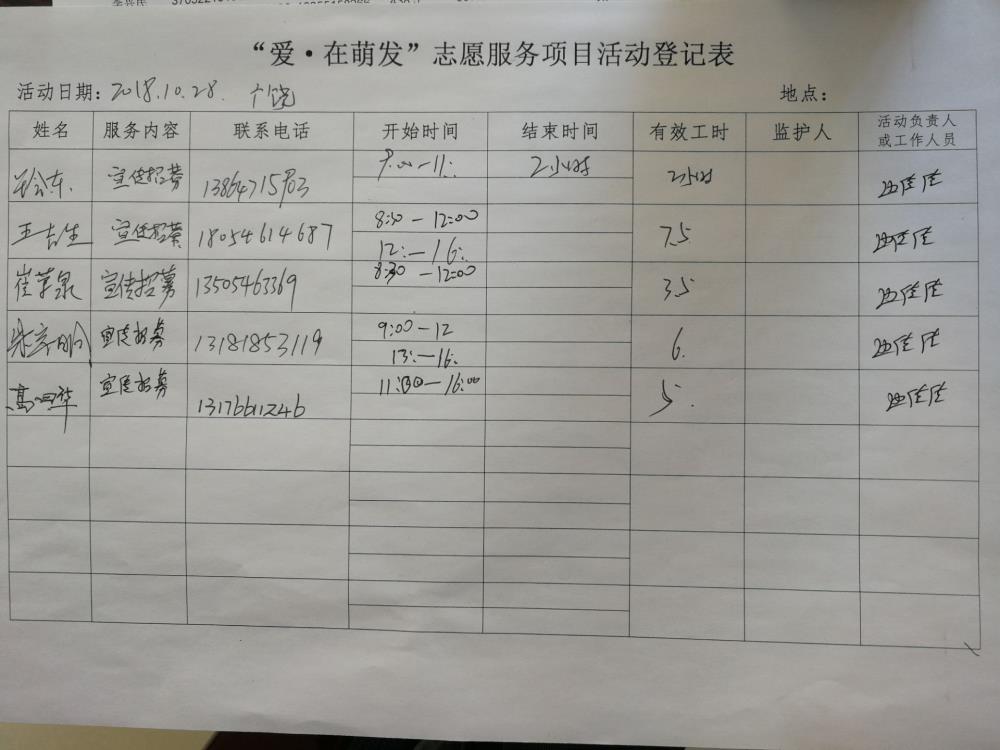 “爱·在萌发”志愿服务项目活动登记表
活动日期：2018.10.28. 广饶 地点：
姓名 服务内容 联系电话 开始时间 结束时间 有效工时 监护人 活动负责人
或工作人员
宣传招募 9:00-11: 2小时 2小时
王吉生 宣传招募 18054614687 8:30-12:00 7.5
12:-16:
崔苹泉 宣传招募 13505463369 8:30-12:00 3.5
宣传招募 13181853119 9:00-12 6.
13:-16:
高四华 宣传招募 13176611246 11:00-16:00 5.